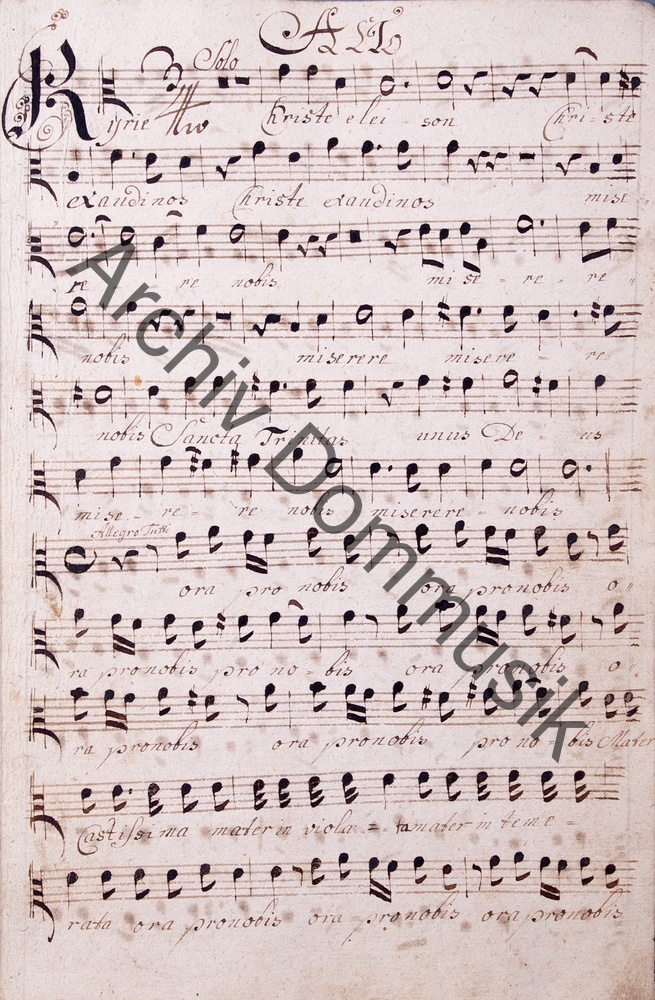 Alto
Solo
Kyrie Christe elei - son Chri - ste
exaudinos Christe exaudinos mise
re re nobis mi se - re - re
nobis miserere misere - re
nobis Sancta Trinitas unus De - us
mise - re - re nobis miserere - nobis
Allegro Tutti
ora pro nobis ora pronobis o
ra pronobis pro no - bis ora pronobis o
ra pronobis ora pronobis pro no - bis Mater
Castissima mater in viola = ta mater in teme -
rata ora pronobis ora pronobis ora pronobis
Archiv Dommusik